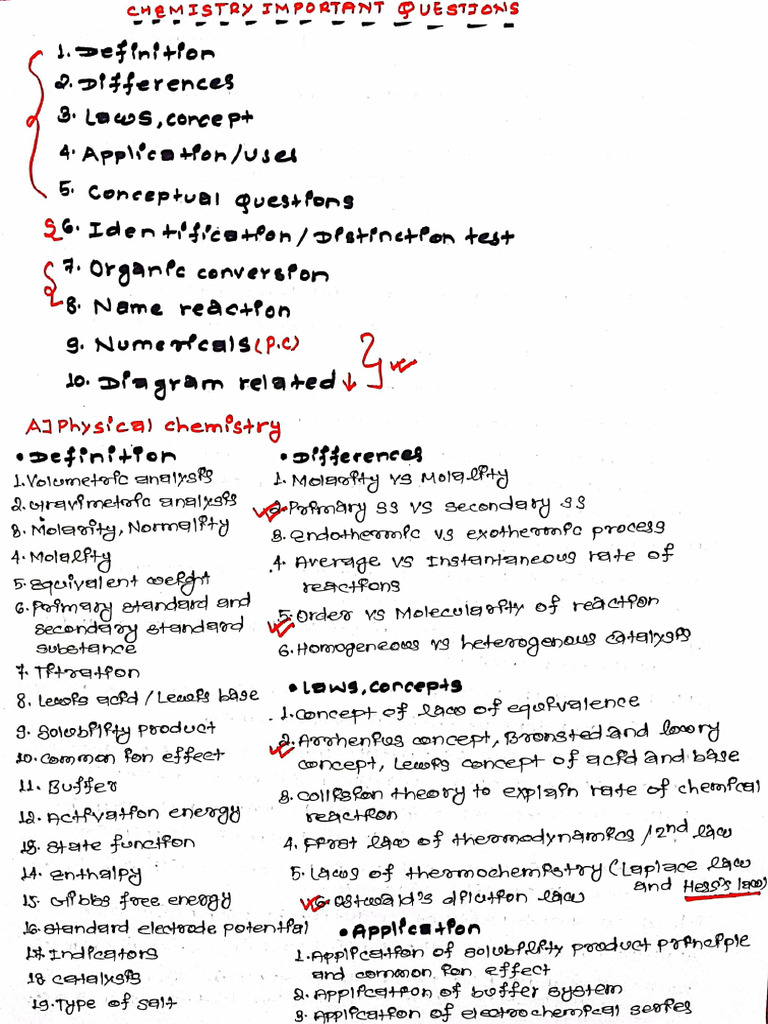 CHEMISTRY IMPORTANT QUESTIONS
1. Definition
2. Differences
3. Laws, concept
4. Application/uses
5. Conceptual Questions
6. Identification/Distinction test
7. Organic conversion
8. Name reaction
9. Numericals (P.C)
10. Diagram related
A] Physical chemistry
• Definition
1. Volumetric analysis
2. Gravimetric analysis
3. Molarity, Normality
4. Molality
5. Equivalent weight
6. Primary standard and
secondary standard
substance
7. Titration
8. Lewis acid / Lewis base
9. Solubility product
10. Common ion effect
11. Buffer
12. Activation energy
13. State function
14. Enthalpy
15. Gibbs free energy
16. Standard electrode potential
17. Indicators
18. Catalysis
19. Type of salt
• Differences
1. Molarity vs Molality
2. Primary SS vs Secondary SS
3. Endothermic vs exothermic process
4. Average vs Instantaneous rate of
reactions
5. Order vs Molecularity of reaction
6. Homogeneous vs heterogenous catalysis
• Laws, concepts
1. Concept of law of equivalence
2. Arrhenius concept, Bronsted and lowry
concept, Lewis concept of acid and base
3. Collision theory to explain rate of chemical
reaction
4. First law of thermodynamics / 2nd law
5. Laws of thermochemistry (Laplace law
and Hess's law)
6. Ostwald's dilution law
• Application
1. Application of solubility product principle
and common ion effect
2. Application of buffer system
3. Application of electrochemical series